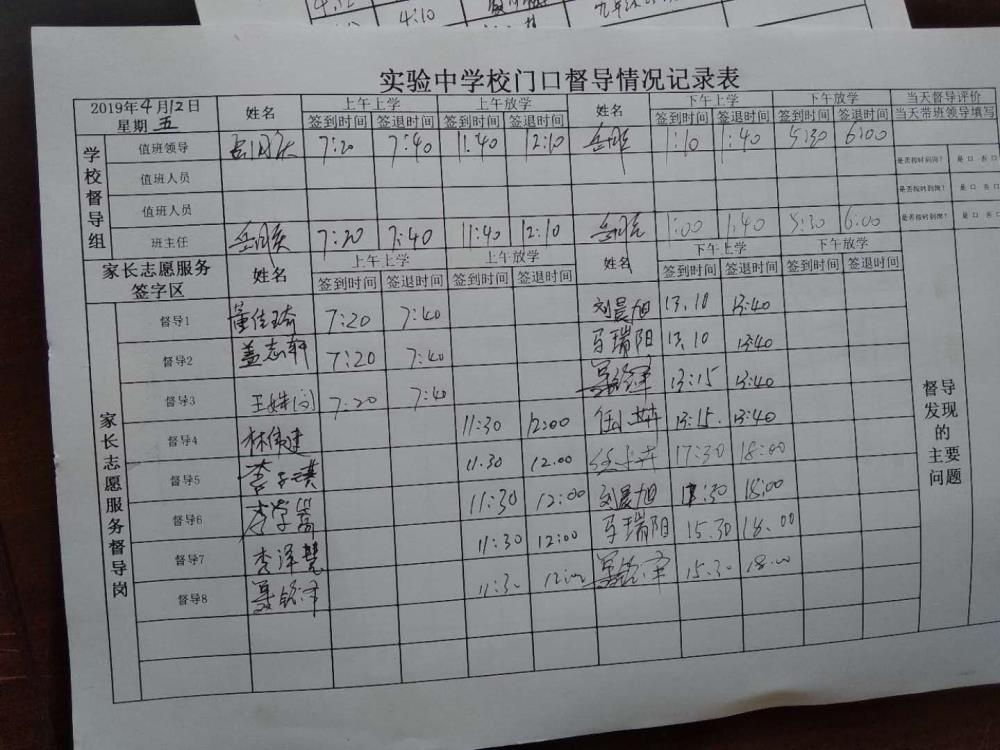 4:10
实验中学校门口督导情况记录表
2019年4月12日
星期 五
姓名 上午上学 上午放学 姓名 下午上学 下午放学 当天督导评价
签到时间 签退时间 签到时间 签退时间 签到时间 签退时间 签到时间 签退时间 当天带班领导填写
学校督导组
值班领导 7:20 7:40 11:40 12:10 1:10 1:40 5:30 6:00
值班人员 是否按时到岗? 是 口 否 口
值班人员 是否按时到岗? 是 口 否 口
班主任 7:20 7:40 11:40 12:10 1:00 1:40 5:30 6:00 是否按时到岗? 是 口 否 口
家长志愿服务
签字区
姓名 上午上学 上午放学 姓名 下午上学 下午放学
签到时间 签退时间 签到时间 签退时间 签到时间 签退时间 签到时间 签退时间
家长志愿服务督导岗
督导1 董佳琦 7:20 7:40 刘晨旭 13.10 13:40
督导2 盖志轩 7:20 7:40 马瑞阳 13.10 13:40
督导3 王姝 7:20 7:40 13:15 13:40
督导4 林伟建 11:30 12:00 13:15. 13:40
督导5 李子琪 11.30 12.00 17:30 18:00
督导6 李学嵩 11:30 12:00 刘晨旭 :30 18:00
督导7 李泽慧 11:30 12:00 马瑞阳 15.30 18.00
督导8 11:30 15.30 18.00
督导
发现
的
主要
问题